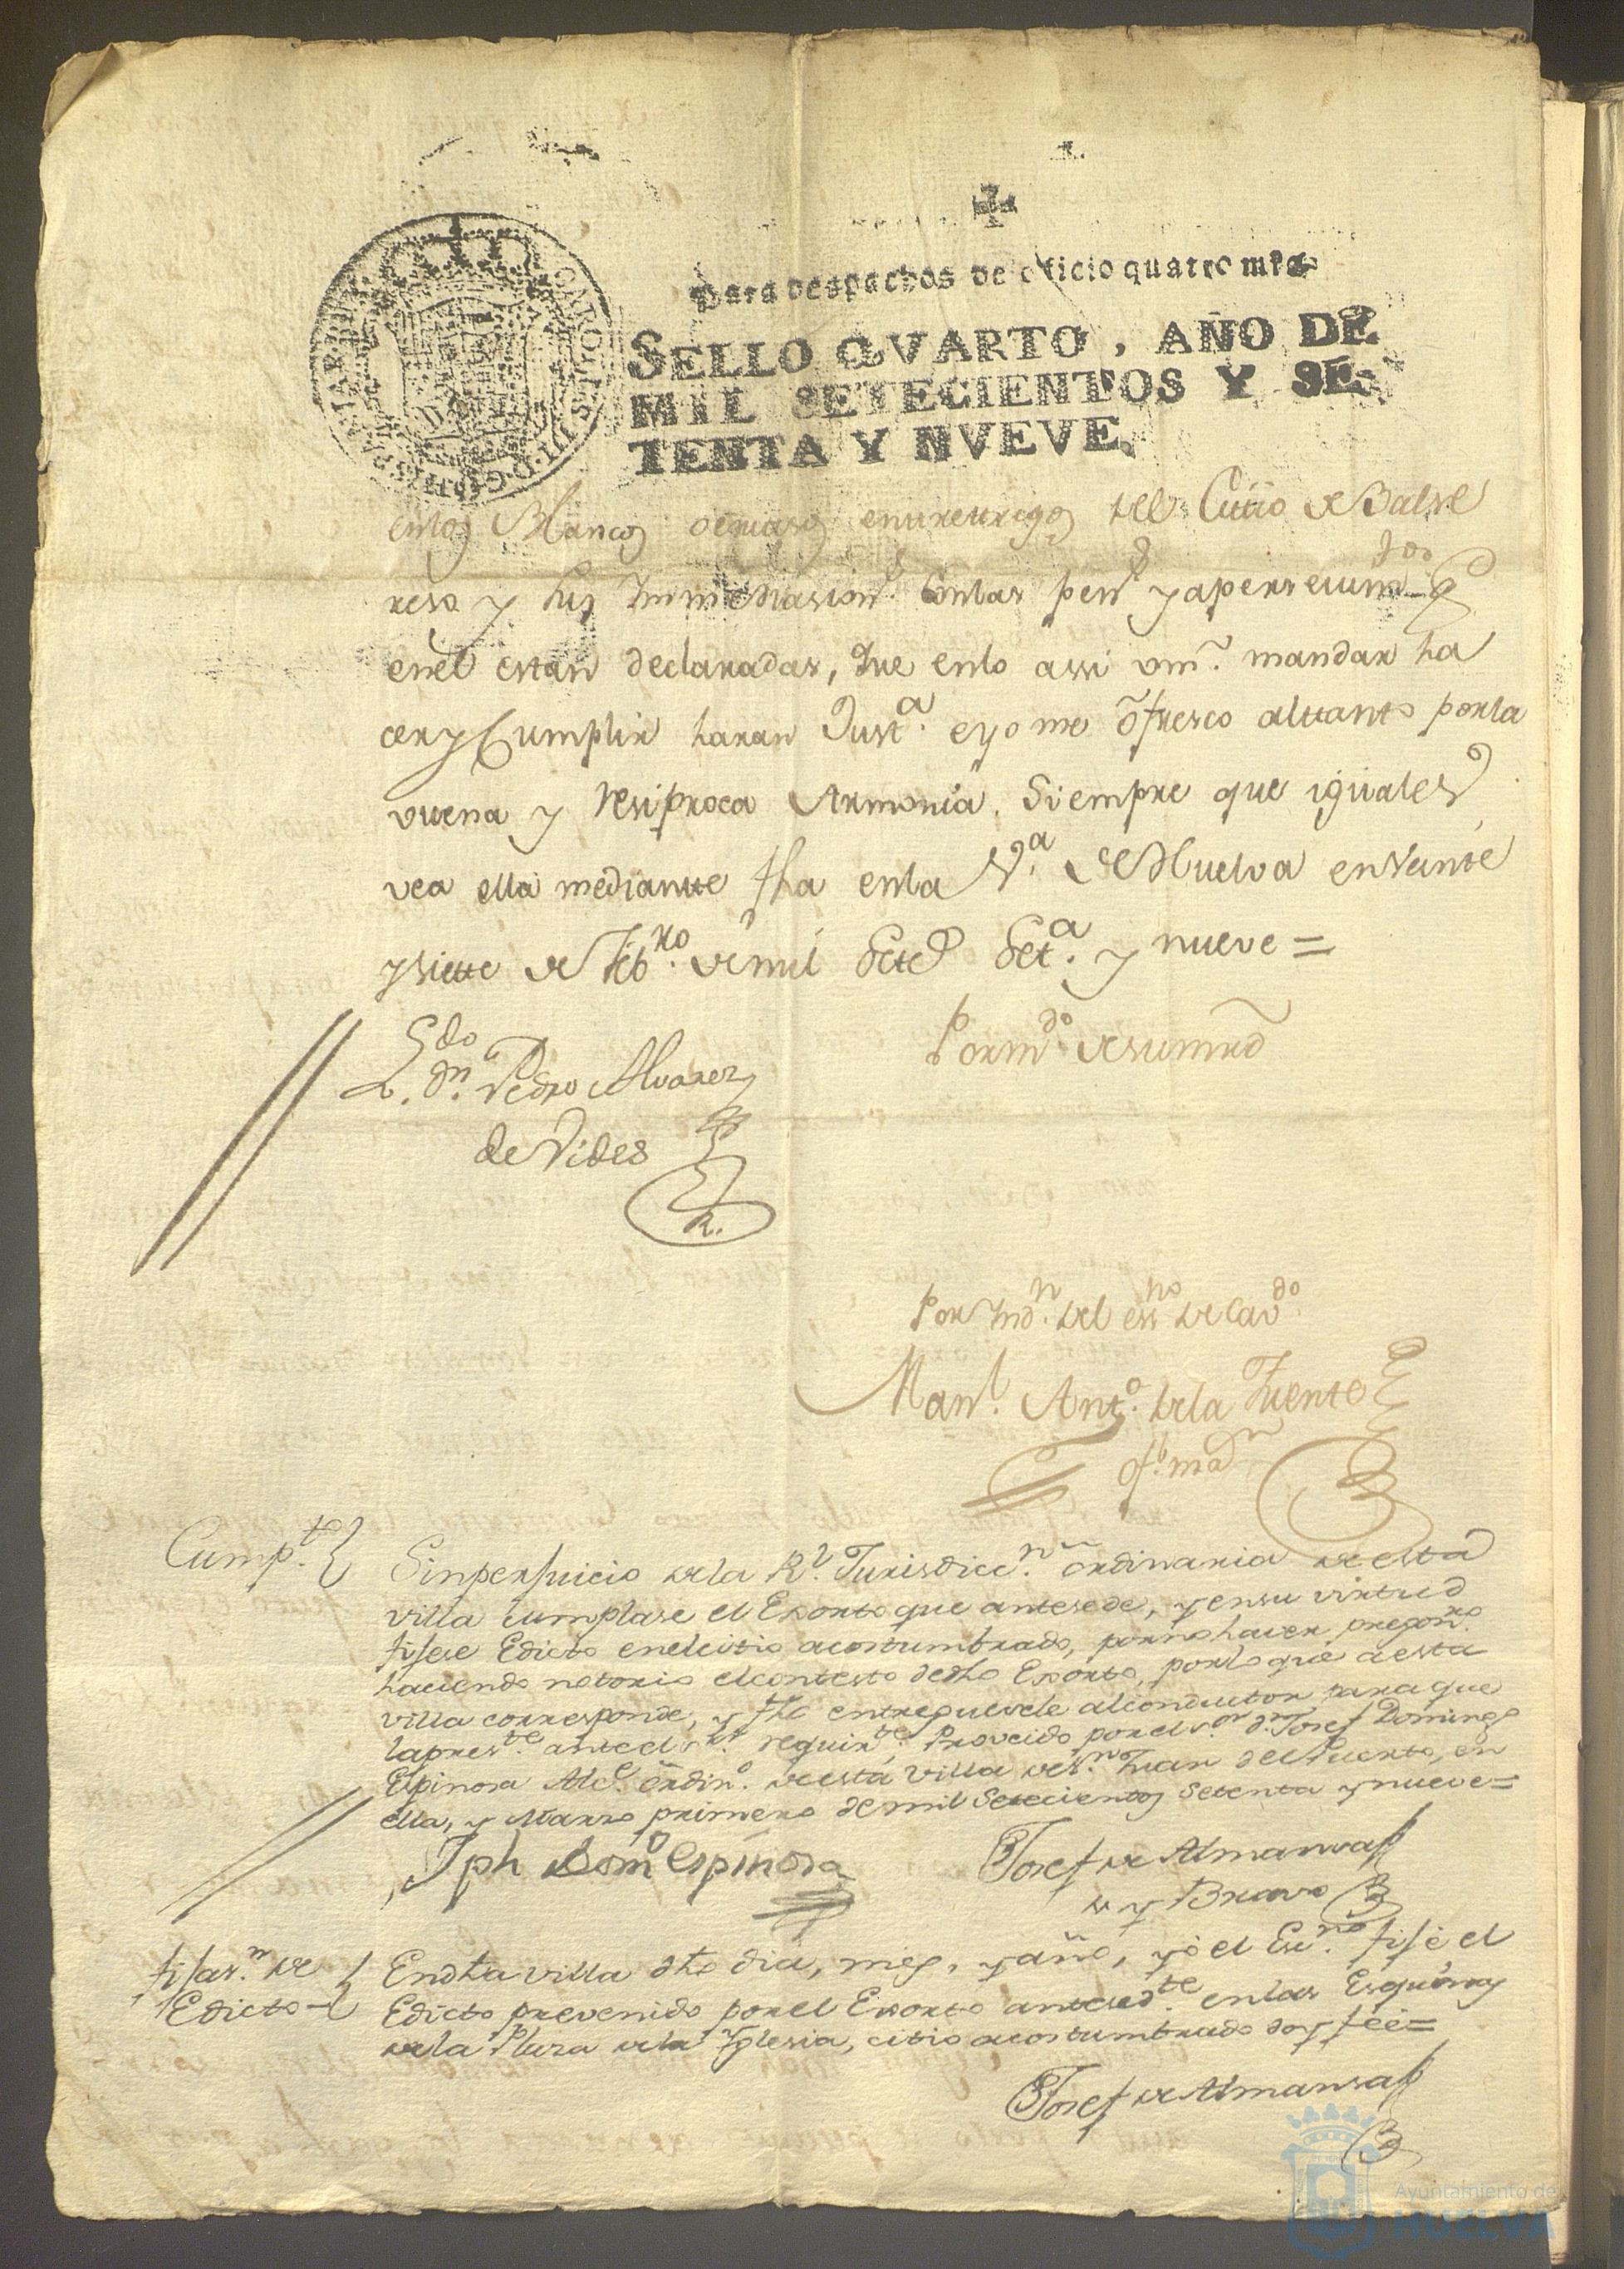 Para despachos de oficio quatro mrs.
SELLO QVARTO, AÑO DE
MIL SETECIENTOS Y SE-
TENTA Y NVEVE.
enlos Blancos del Citio de Balse
y sus Inmediasion.s Conlas pen.s y apersevim.tos q.e
enel estan declaradas, que enlo assi vm.s mandar ha
cer y Cumplir haran Just.a e yo me ofresco altanto por la
vuena y resiproca Armonia, Siempre que iguales
vea ella mediantte fha enla V.a de Huelva en Veinte
y siette de Feb.ro de mil Set.s Set.a y nueve =
L.do d.n Pedro Alvarez
de Vides
R.
Por m.do de su mrd
Por md.n del ess.no de Cav.do
Man.l Ant.o de la Fuente
Cump.to
Sin perjuicio de la R.l Jurisdicc.n ordinaria de esta
villa cumplase el Exorto que antesede, y en su virtud
fijese Edicto enel citio acostumbrado, por no haver pregon.ro
haciendo notorio el contesto de dho Exorto, por lo que a esta
villa corresponde, y fho entreguesele al conductor para que
lapres.te ante el s.r requir.te: Proveido por el s.or d.n Josef Domingo
Espinosa Alc.e ordin.o de esta villa de S.n Juan del Puerto, en
ella, y Marzo primero de mil Setecientos Setenta y nueve =
Jph Dom.o Espinosa
Josef de Almansa
y Bravo
fijas.n de
Edicto
En dha villa dho dia, mes, y año, yo el Esc.no fijé el
Edicto prevenido por el Exorto antesed.te en las Esquinas
de la Plaza de la Yglesia, citio acostumbrado doy feé =
Josef de Almansa
Ayuntamiento de
HUELVA